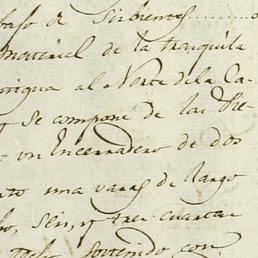 de Sirbientes..........
material de la tranquila
antigua al Norte de la Ca-
y se compone de las Pie-
un Encerradero de dos
una varas de largo
seis, y tres cuartas
techo, sostenido con